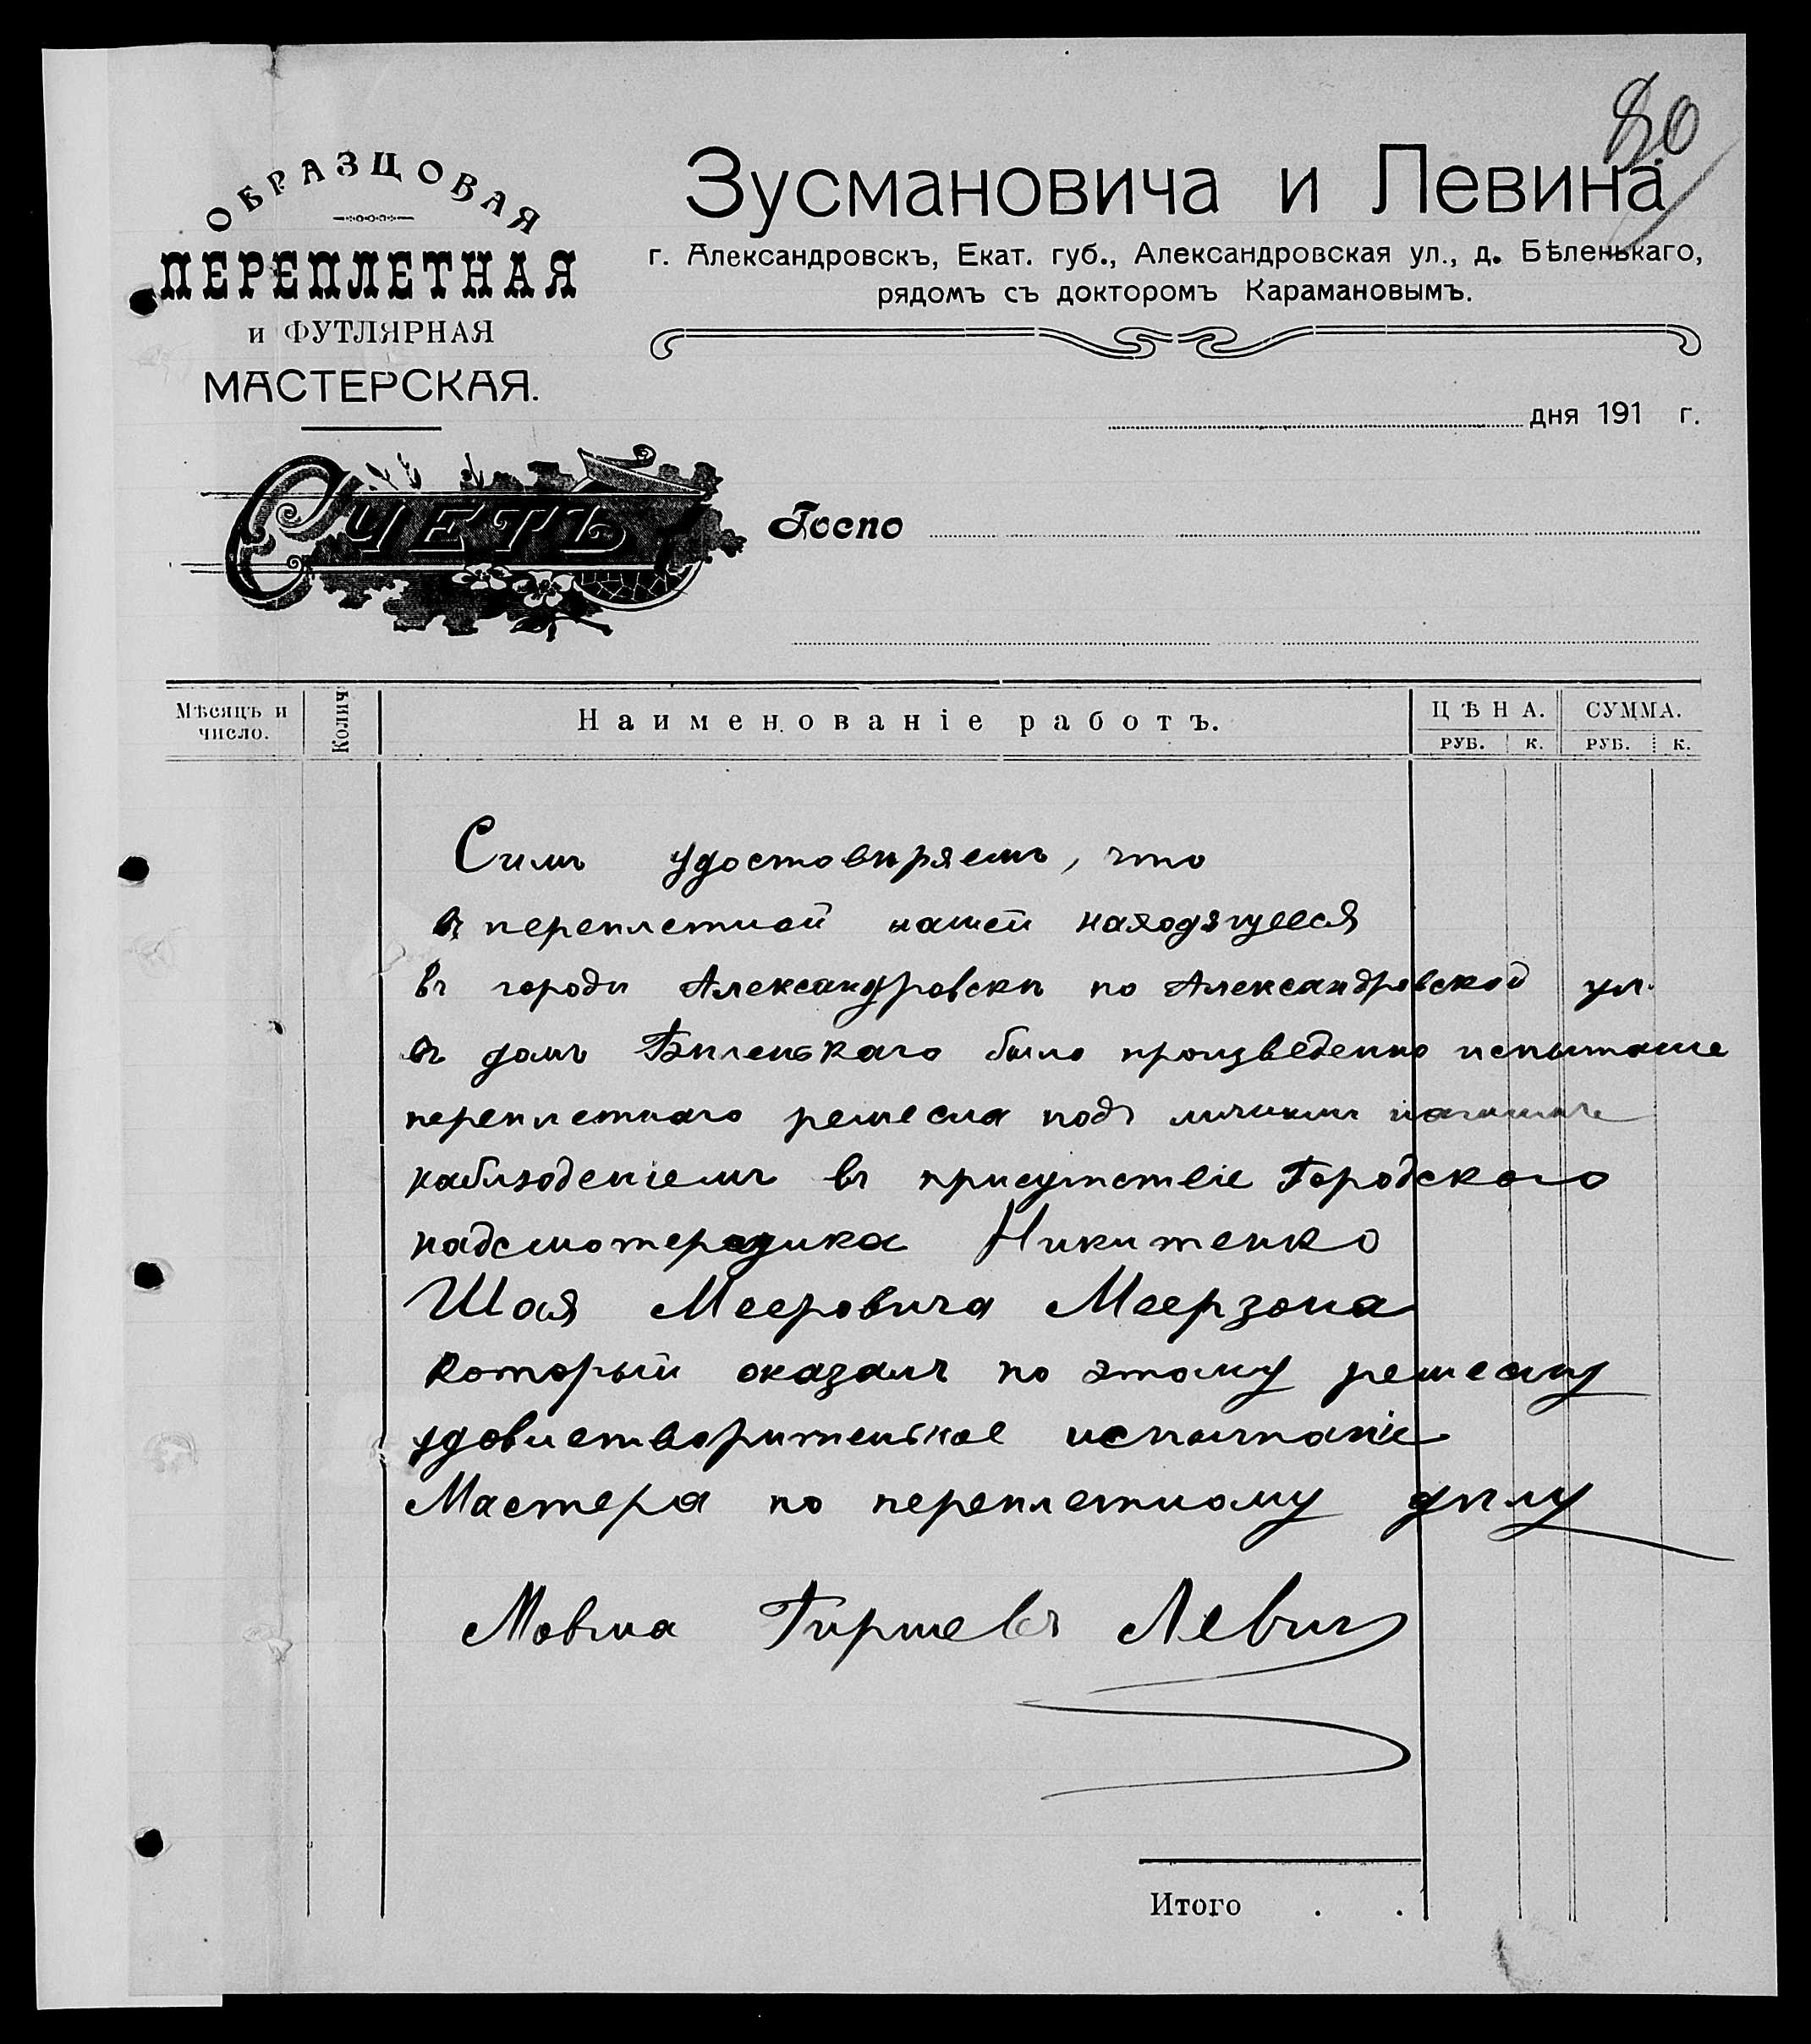 80
ОБРАЗЦОВАЯ
ПЕРЕПЛЕТНАЯ
и ФУТЛЯРНАЯ
МАСТЕРСКАЯ.
Зусмановича и Левина
г. Александровскъ, Екат. губ., Александровская ул., д. Бѣленькаго,
рядомъ съ докторомъ Карамановымъ.
дня 191 г.
Счетъ
Госпо
Мѣсяцъ и число.
Колич
Наименованіе работъ.
ЦѢНА.
СУММА.
РУБ. К. РУБ. К.
Симъ удостовѣряемъ, что
въ переплетной нашей находящееся
въ городѣ Александровскѣ по Александровской ул.
въ домѣ Бѣленькаго было произведенно испытание
переплетнаго ремесла подъ личнымъ нашимъ
наблюденіемъ въ присутствіе Городского
надсмотерщика Никитенко
Шая Мееровича Меерзона
который оказалъ по этому ремеслу
удовлетворительное испытаніе
Мастера по переплетному дѣлу
Мовша Гиршевъ Левинъ
Итого . .